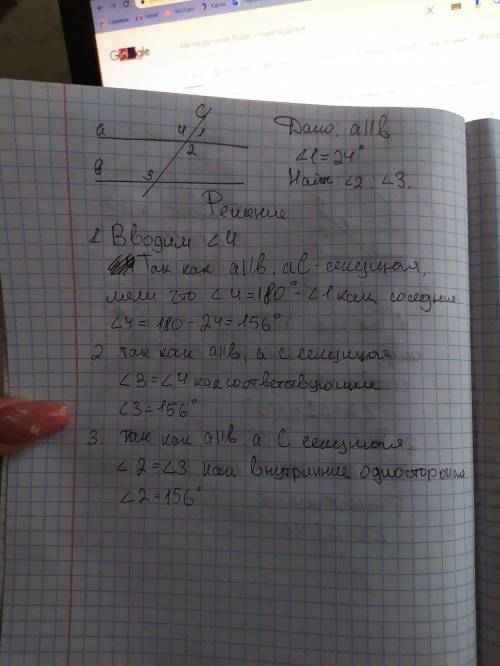 Сервисы Gmail YouTube
Google
c
a 4 1
2
в 3
Дано: a||b
∠1=24°
Найти ∠2; ∠3.
Решение
1. Вводим ∠4
Так как a||b, а С-секущая,
∠4=180°-∠1 как соседние
∠4=180-24=156°
2. так как a||b, а С секущая
∠3=∠4 как соответствующие
∠3=156°
3. так как a||b, а С секущая
∠2=∠3 как внутринние односторонии
∠2=156°